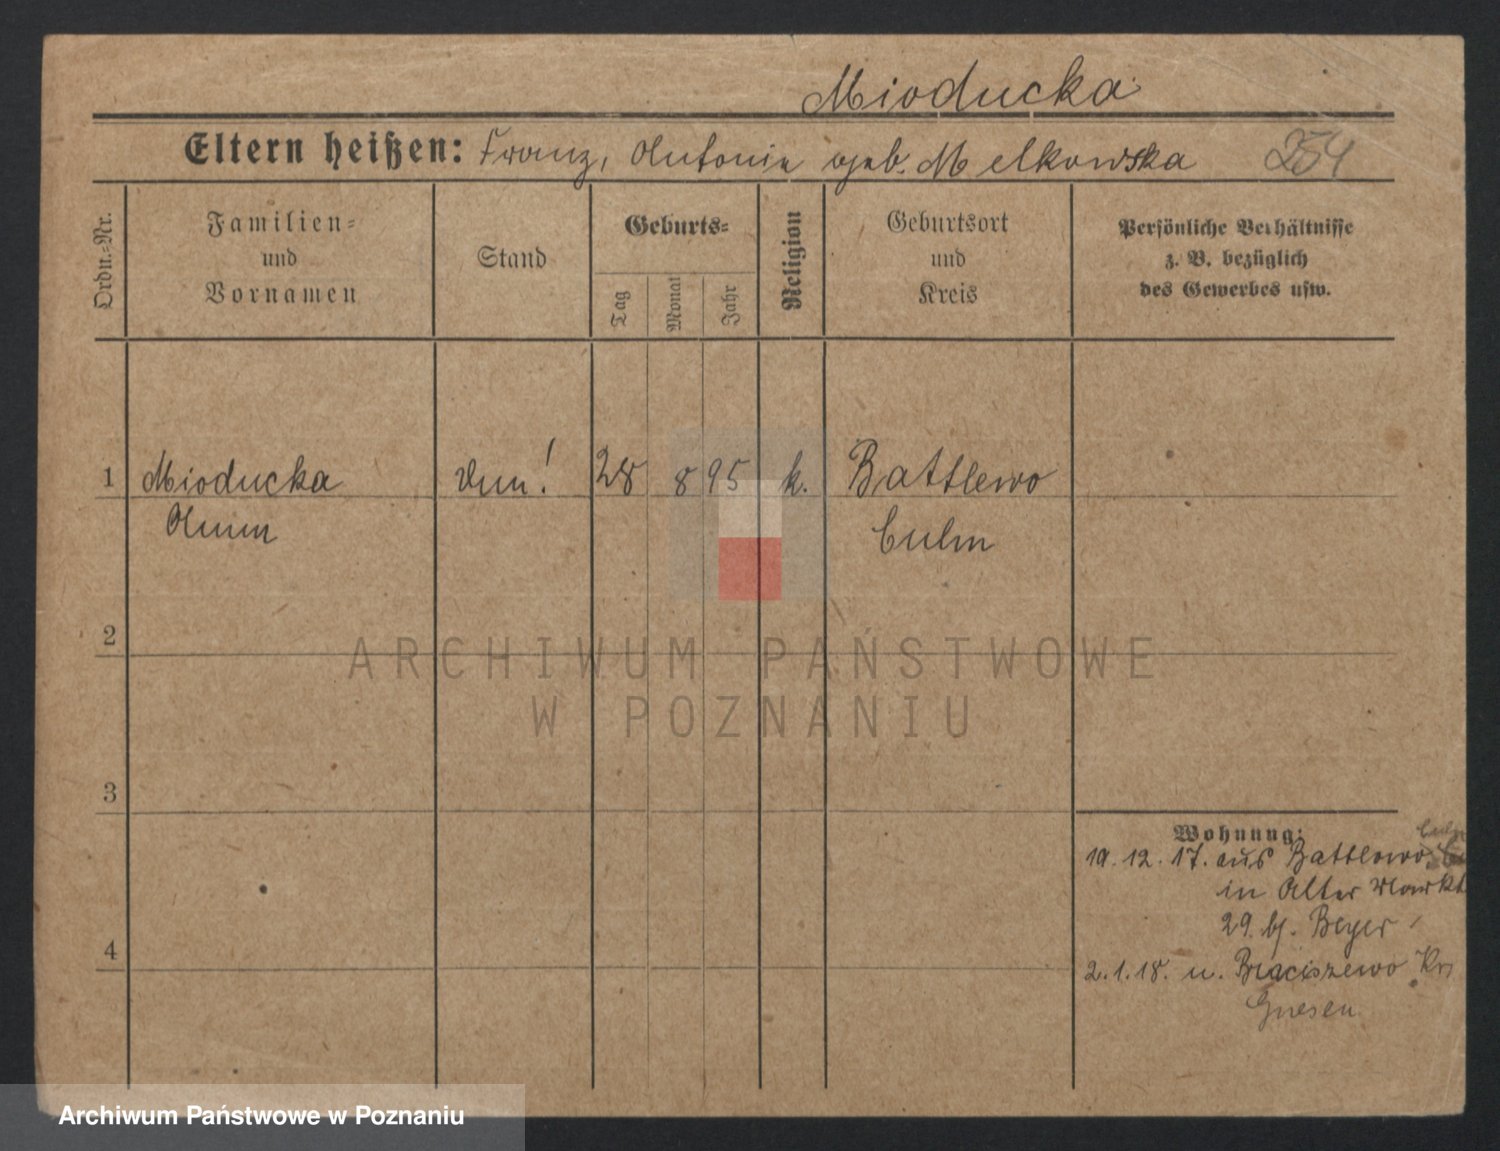 Mioducka
Eltern heißen: Franz, Antonie geb. Melkowska 254
Ordn.-Nr.
Familien- und Vornamen
Stand
Geburts-
Tag
Monat
Jahr
Religion
Geburtsort und Kreis
Persönliche Verhältnisse z. B. bezüglich des Gewerbes usw.
1 Mioducka 28 8 95 k. Battlewo
Anna Culm
2
3
4
Wohnung:
Culm
19. 12. 17. aus Battlewo
in Alter Markt
29 bj. Beyer
2. 1. 18. n. Braciszewo Krs
Gnesen
ARCHIWUM PAŃSTWOWE
W POZNANIU
Archiwum Państwowe w Poznaniu